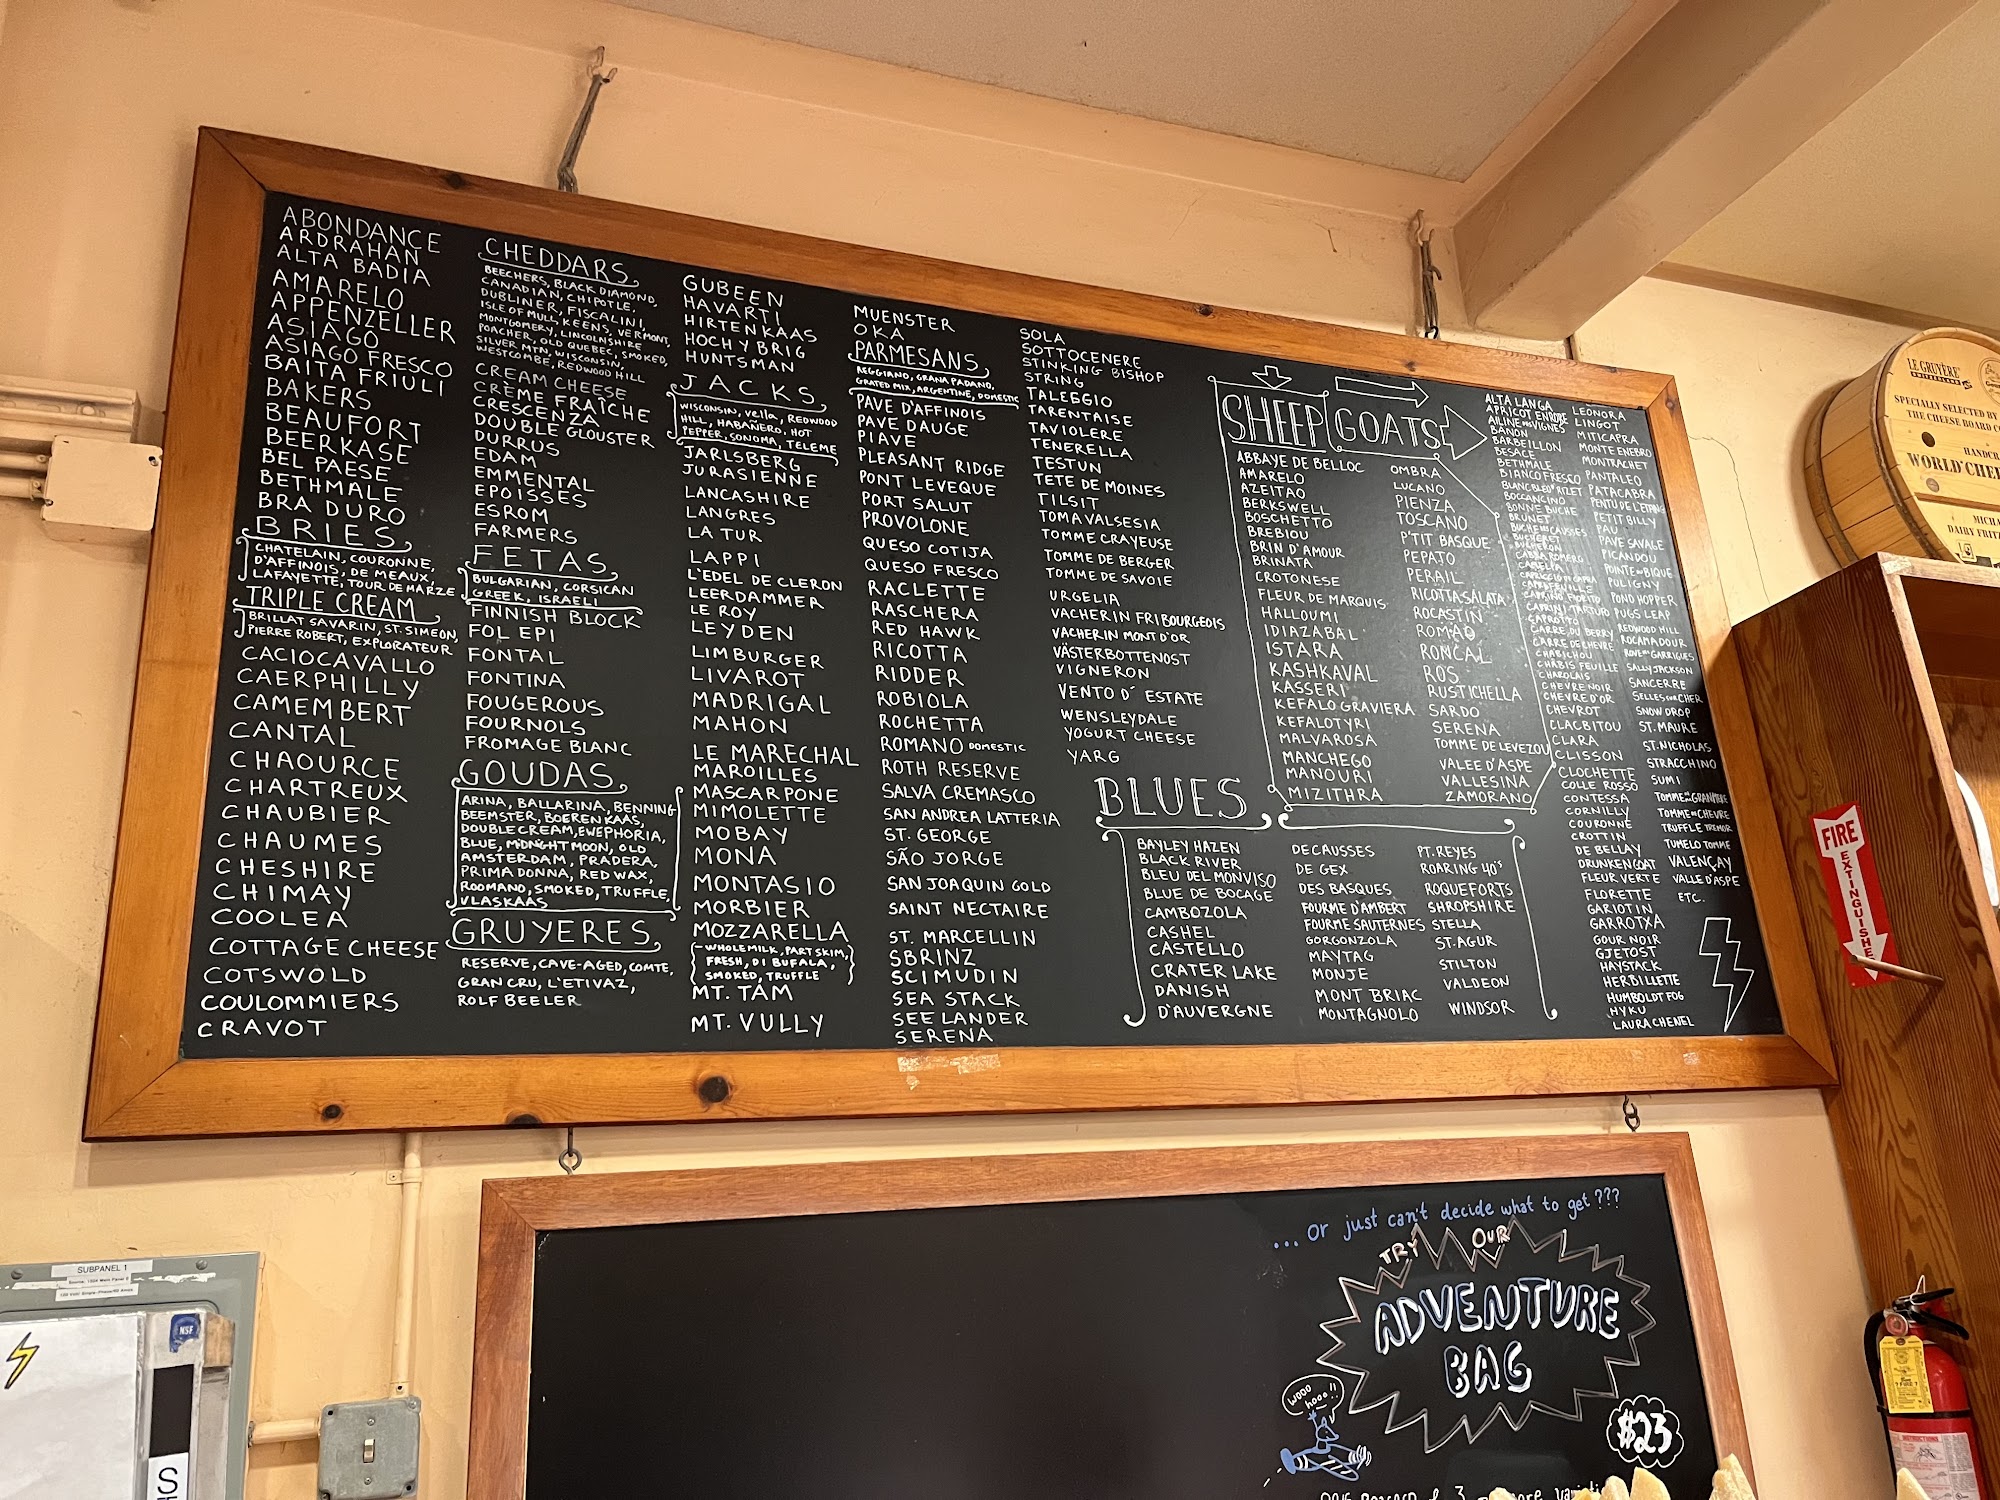 ABONDANCE
ARDRAHAN
ALTA BADIA
AMARELO
APPENZELLER
ASIAGO
ASIAGO FRESCO
BAITA FRIULI
BAKERS
BEAUFORT
BEERKASE
BEL PAESE
BETHMALE
BRA DURO
BRIES
CHATELAIN, COURONNE,
D'AFFINOIS, DE MEAUX,
LAFAYETTE, TOUR DE MARZE
TRIPLE CREAM
BRILLAT SAVARIN, ST. SIMEON,
PIERRE ROBERT, EXPLORATEUR
CACIOCAVALLO
CAERPHILLY
CAMEMBERT
CANTAL
CHAOURCE
CHARTREUX
CHAUBIER
CHAUMES
CHESHIRE
CHIMAY
COOLEA
COTTAGE CHEESE
COTSWOLD
COULOMMIERS
CRAVOT
CHEDDARS
BEECHERS, BLACK DIAMOND,
CANADIAN, CHIPOTLE,
DUBLINER, FISCALINI,
ISLE OF MULL, KEENS, VERMONT,
MONTGOMERY, LINCOLNSHIRE
POACHER, OLD QUEBEC, SMOKED,
SILVER MTN, WISCONSIN,
WESTCOMBE, REDWOOD HILL
CREAM CHEESE
CRÈME FRAÎCHE
CRESCENZA
DOUBLE GLOUSTER
DURRUS
EDAM
EMMENTAL
EPOISSES
ESROM
FARMERS
FETAS
BULGARIAN, CORSICAN
GREEK, ISRAELI
FINNISH BLOCK
FOL EPI
FONTAL
FONTINA
FOUGEROUS
FOURNOLS
FROMAGE BLANC
GOUDAS
ARINA, BALLARINA, BENNING
BEEMSTER, BOERENKAAS,
DOUBLE CREAM, EWEPHORIA,
BLUE, MIDNIGHT MOON, OLD
AMSTERDAM, PRADERA,
PRIMA DONNA, RED WAX,
ROOMANO, SMOKED, TRUFFLE,
VLASKAAS
GRUYERES
RESERVE, CAVE-AGED, COMTE,
GRAN CRU, L'ETIVAZ,
ROLF BEELER
GUBEEN
HAVARTI
HIRTENKAAS
HOCH Y BRIG
HUNTSMAN
JACKS
WISCONSIN, Vella, REDWOOD
HILL, HABAÑERO, HOT
PEPPER, SONOMA, TELEME
JARLSBERG
JURASIENNE
LANCASHIRE
LANGRES
LA TUR
LAPPI
L'EDEL DE CLERON
LEERDAMMER
LE ROY
LEYDEN
LIMBURGER
LIVAROT
MADRIGAL
MAHON
LE MARECHAL
MAROILLES
MASCARPONE
MIMOLETTE
MOBAY
MONA
MONTASIO
MORBIER
MOZZARELLA
WHOLE MILK, PART SKIM,
FRESH, DI BUFALA,
SMOKED, TRUFFLE
MT. TAM
MT. VULLY
MUENSTER
OKA
PARMESANS
REGGIANO, GRANA PADANO,
GRATED MIX, ARGENTINE, DOMESTIC
PAVE D'AFFINOIS
PAVE DAUGE
PIAVE
PLEASANT RIDGE
PONT LEVEQUE
PORT SALUT
PROVOLONE
QUESO COTIJA
QUESO FRESCO
RACLETTE
RASCHERA
RED HAWK
RICOTTA
RIDDER
ROBIOLA
ROCHETTA
ROMANO DOMESTIC
ROTH RESERVE
SALVA CREMASCO
SAN ANDREA LATTERIA
ST. GEORGE
SÃO JORGE
SAN JOAQUIN GOLD
SAINT NECTAIRE
ST. MARCELLIN
SBRINZ
SCIMUDIN
SEA STACK
SEELANDER
SERENA
SOLA
SOTTOCENERE
STINKING BISHOP
STRING
TALEGGIO
TARENTAISE
TAVIOLERE
TENERELLA
TESTUN
TETE DE MOINES
TILSIT
TOMA VALSESIA
TOMME CRAYEUSE
TOMME DE BERGER
TOMME DE SAVOIE
URGELIA
VACHERIN FRIBOURGEOIS
VACHERIN MONT D'OR
VÄSTERBOTTENOST
VIGNERON
VENTO D'ESTATE
WENSLEYDALE
YOGURT CHEESE
YARG
SHEEP
ABBAYE DE BELLOC
AMARELO
AZEITAO
BERKSWELL
BOSCHETTO
BREBIOU
BRIN D'AMOUR
BRINATA
CROTONESE
FLEUR DE MARQUIS
HALLOUMI
IDIAZABAL
ISTARA
KASHKAVAL
KASSERI
KEFALO GRAVIERA
KEFALOTYRI
MALVAROSA
MANCHEGO
MANOURI
MIZITHRA
OMBRA
LUCANO
PIENZA
TOSCANO
P'TIT BASQUE
PEPATO
PERAIL
RICOTTA SALATA
ROCASTIN
ROMÃO
RONCAL
ROS
RUSTICHELLA
SARDO
SERENA
TOMME DE LEVEZOU
VALEE D'ASPE
VALLESINA
ZAMORANO
GOATS
ALTA LANGA
APRICOT ENROBE
AILINE DES VIGNES
BANON
BARBEILLON
BESACE
BETHMALE
BIANCO FRESCO
BOCCANCINO
BONNE BUCHE
BRUNET
BUCHE DES CAUSSES
CABRA ROMERO
CAPRICCIO DI CAPRA
CAPRINI TARTUFO
CAPROTTO
CARRE DU BERRY
CARRE DE CHEVRE
CHABICHOU
CHABIS FEUILLE
CHAROLAIS
CHEVRE NOIR
CHEVRE D'OR
CHEVROT
CLACBITOU
CLARA
CLISSON
CLOCHETTE
COLLE ROSSO
CONTESSA
CORNILLY
COURONNE
CROTTIN
DE BELLAY
DRUNKEN GOAT
FLEUR VERTE
FLORETTE
GARIOTIN
GARROTXA
GOUR NOIR
GJETOST
HAYSTACK
HERBILLETTE
HUMBOLDT FOG
HYKU
LAURA CHENEL
LEONORA
LINGOT
MITICAPRA
MONTE ENEBRO
MONTRACHET
PANTALEO
PATACABRA
PETIT BILLY
PAU
PAVE SAVAGE
PICANDOU
POINTE DE BIQUE
PULIGNY
POND HOPPER
PUGS LEAP
REDWOOD HILL
ROCAMADOUR
ROVE DES GARRIGUES
SALLY JACKSON
SANCERRE
SELLES SUR CHER
SNOW DROP
ST. MAURE
ST. NICHOLAS
STRACCHINO
SUMI
TOMME DE CHEVRE
TRUFFLE TREMOR
TUMELO TOMME
VALENÇAY
VALLE D'ASPE
ETC.
BLUES
BAYLEY HAZEN
BLACK RIVER
BLEU DEL MONVISO
BLUE DE BOCAGE
CAMBOZOLA
CASHEL
CASTELLO
CRATER LAKE
DANISH
D'AUVERGNE
DECAUSSES
DE GEX
DES BASQUES
FOURME D'AMBERT
FOURME SAUTERNES
GORGONZOLA
MAYTAG
MONJE
MONT BRIAC
MONTAGNOLO
PT. REYES
ROARING 40'S
ROQUEFORTS
SHROPSHIRE
STELLA
ST. AGUR
STILTON
VALDEON
WINDSOR
LE GRUYÈRE
SWITZERLAND
SPECIALLY SELECTED BY
THE CHEESE BOARD CO
HANDCR
WORLD'CHEE
MICHA
DAIRY FRITZ
FIRE
EXTINGUISHER
... or just can't decide what to get???
TRY OUR
ADVENTURE
BAG
WOOO
hooo!!
$23
SUBPANEL 1
NSF